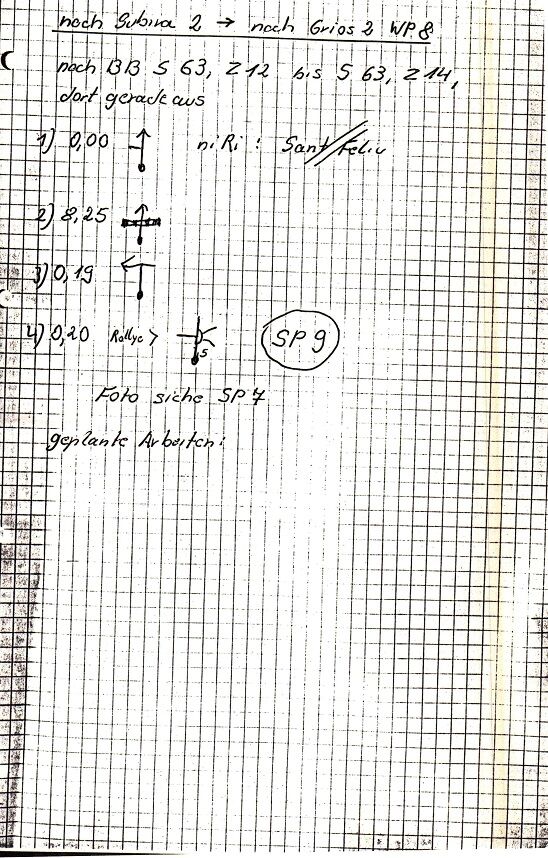 nach Subira 2 → nach Grios 2 WP 8
nach BB S 63, Z 12 bis S 63, Z 14,
dort geradeaus
1) 0,00 niRi: Sant Feliu
2) 8,25
3) 0,19
4) 0,20 Rallye > 5 SP 9
Foto siehe SP 7
geplante Arbeiten: